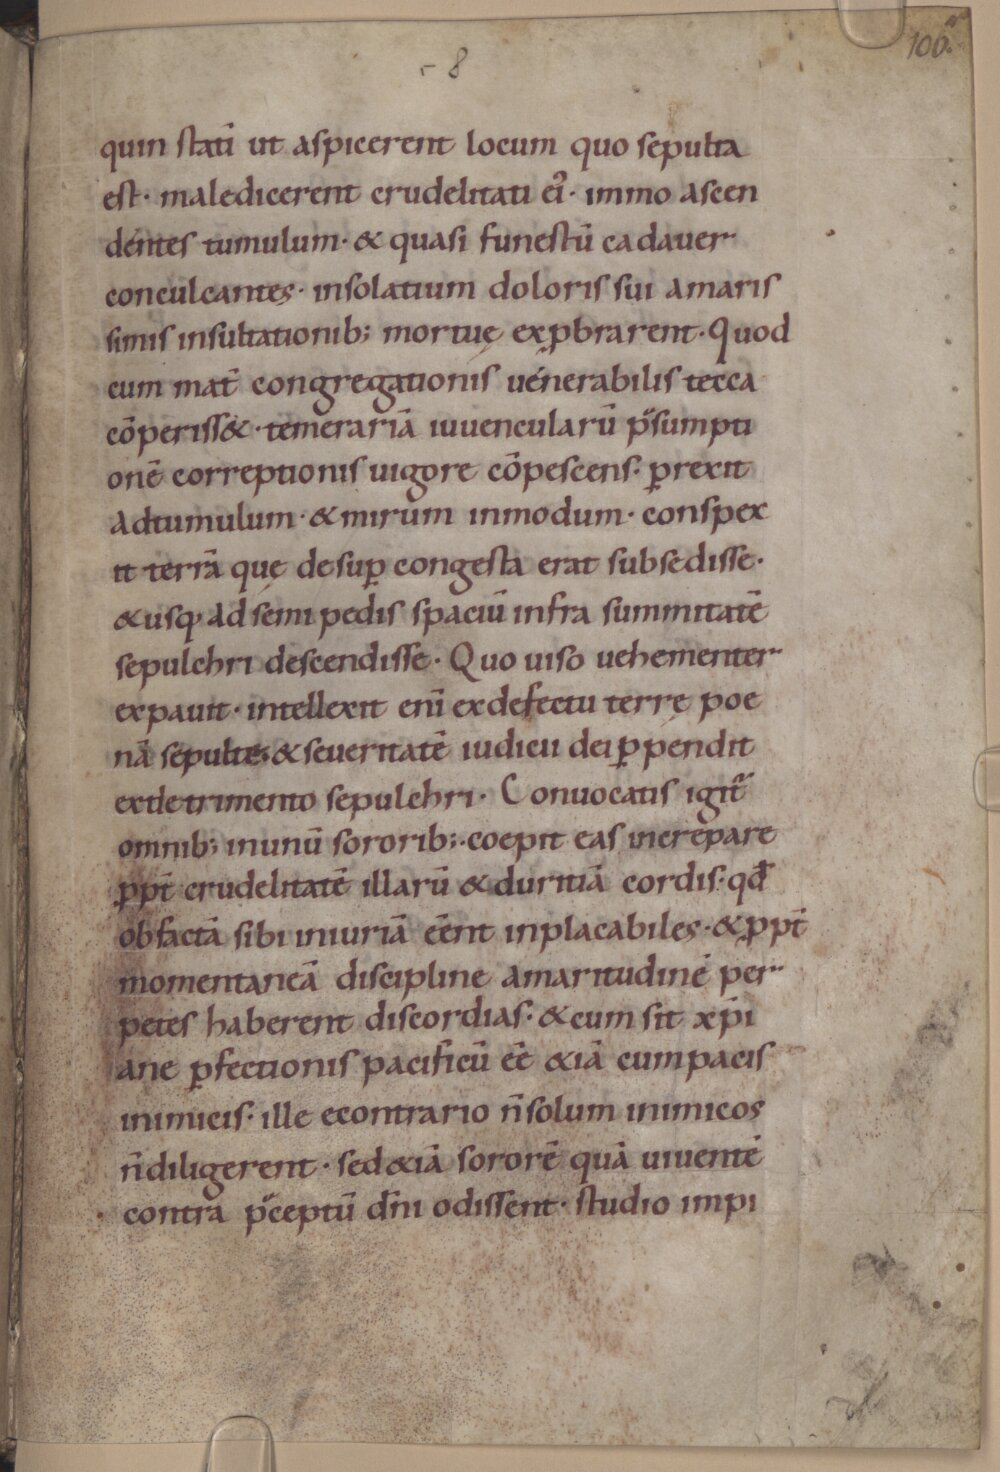 100.
8
quin statī ut aspicerent locum quo sepulta
est· maledicerent crudelitati ei᾽· immo ascen
dentes tumulum· & quasi funestū cadauer
conculcantes· insolatium doloris sui amaris
simis insultationib; mortuę exprobrarent· Quod
cum mat̄ congregationis uenerabilis tecca
cōperiss&· temerariā iuuencularū p̄sumpti
onē correptionis uigore cōpescens· ꝑrexit
adtumulum· & mirum inmodum· conspex
it terrā quę desuꝑ congesta erat subsedisse·
& usq; ad semi pedis spaciū infra summitatē
sepulchri descendisse· Quo uiso uehementer
expauit· intellexit enī exdefectu terrę poe
nā sepultę· & seueritatē iudicii dei ꝑpendit
exdetrimento sepulchri· Conuocatis igit᷑
omnib; inunū sororib;· coepit eas increpare
ꝓpt̄ crudelitatē illarū & duritiā cordis· qđ
obfactā sibi iniuriā eēnt inplacabiles· & ꝓpt̄
momentaneā discipline amaritudinē per
petes haberent discordias· & cum sit xp̄i
ane ꝑfectionis pacificū eē &iā cumpacis
inimicis· ille econtrario n̄solum inimicos
n̄diligerent· sed&iā sororē quā uiuentē
contra p̄ceptū dn̄i odissent· studio impi